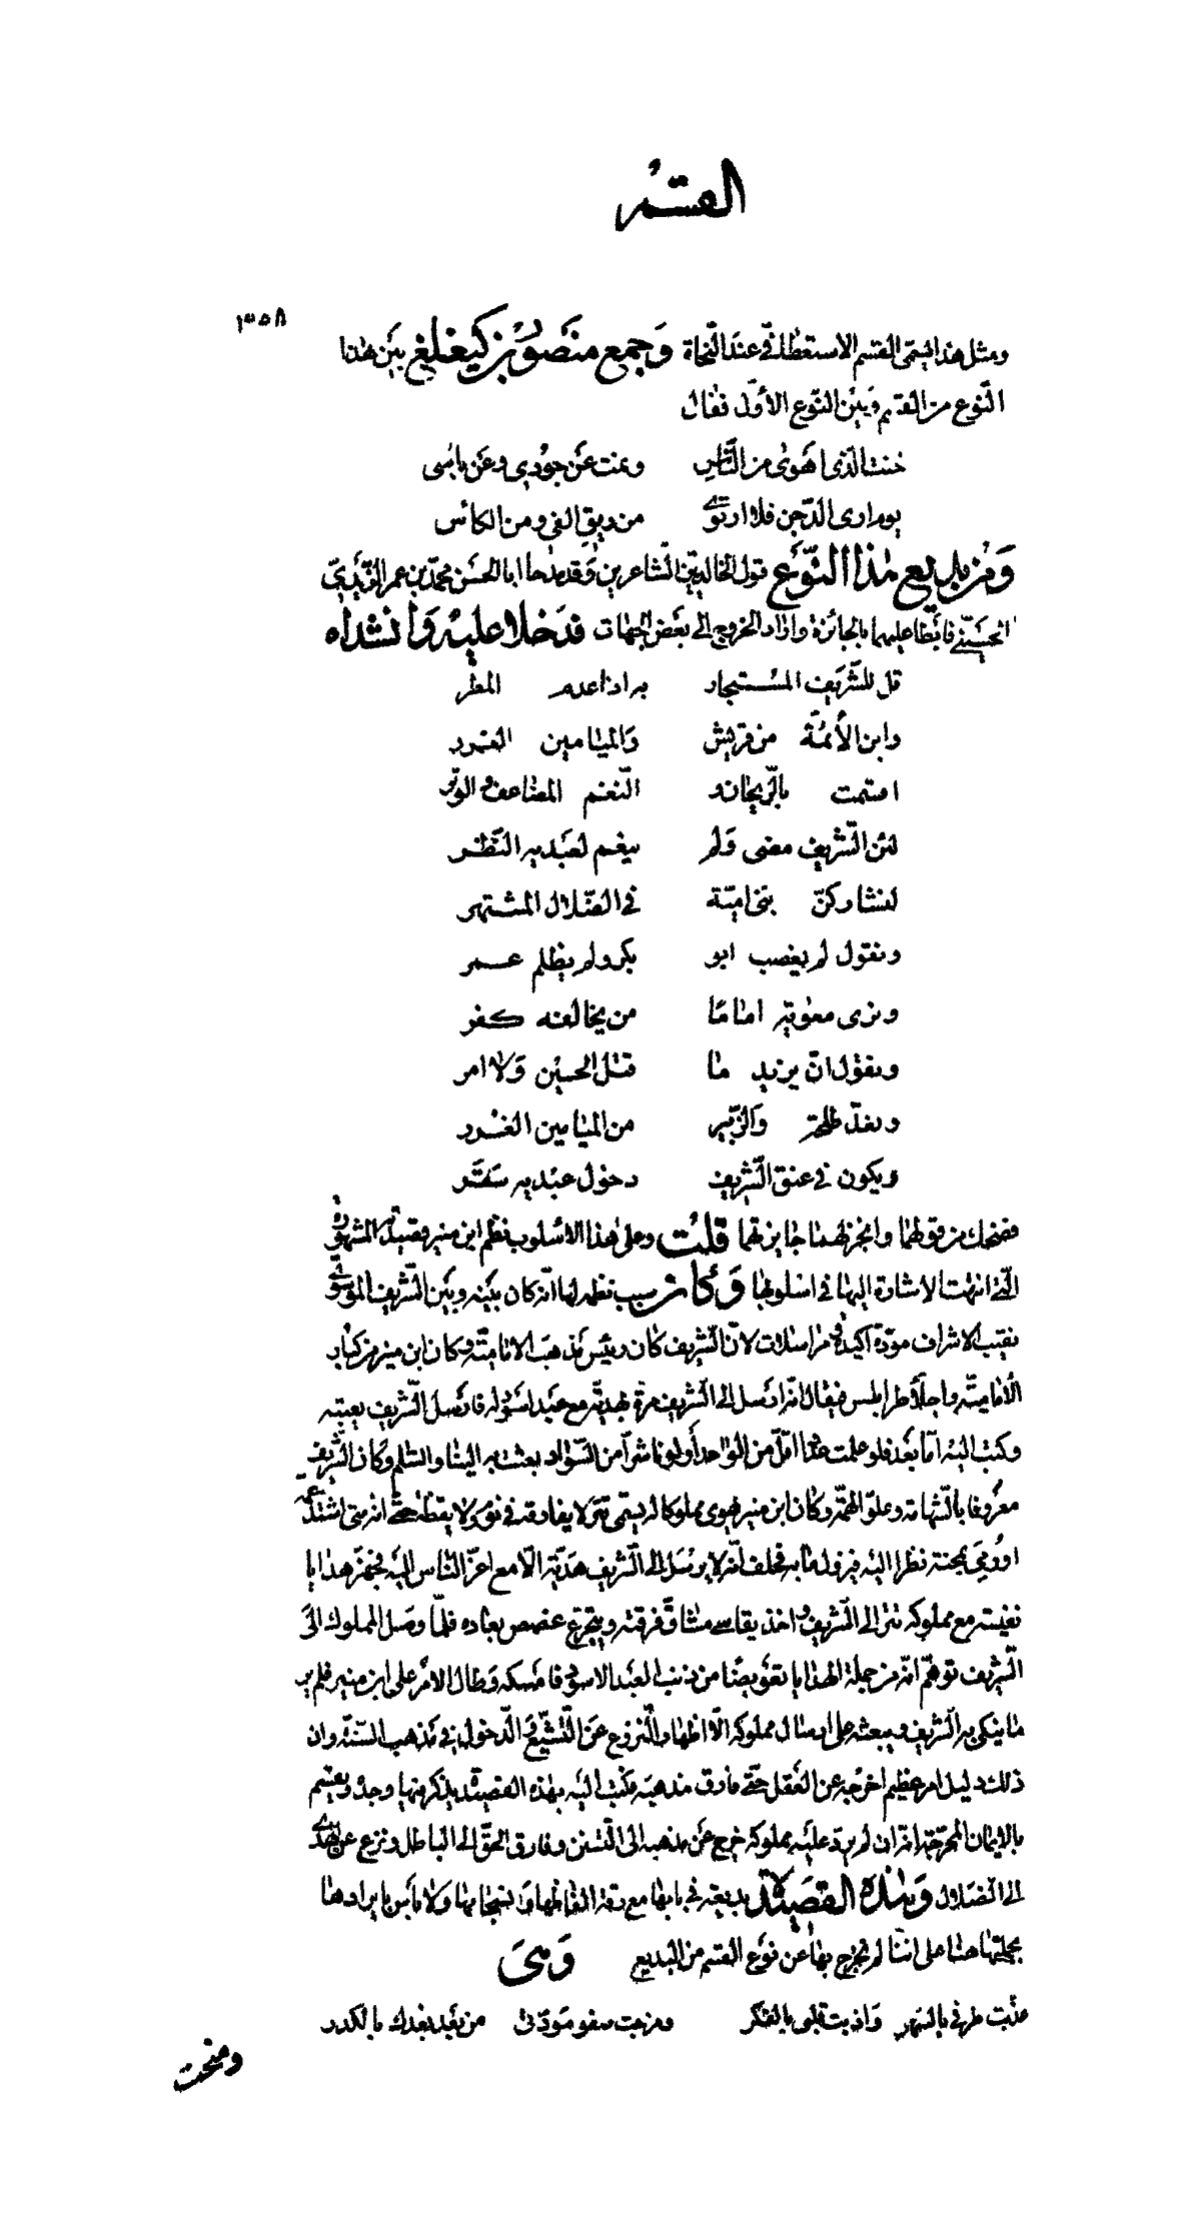 القسم
٣٥٨
ومثل هذا يسمى القسم الاستعطافي عند النحاة وجمع منصور بن كيغلغ بين هذا
النوع من القسم وبين النوع الأول فقال
خنت الذي اهوى من الناس ومنت عن جودي وعن باسى
يوم ارى الدجن فلا ارتوي من ريق الفي ومن الكأس
ومن بديع هذا النوع قول الخالديين الشاعرين وقد مدحا ابا الحسن محمد بن عمر الزيدي
الحسيني فابطا عليهما بالجائزة واراد الخروج الى بعض الجهات فدخلا عليه وانشداه
قل للشريف المستجار به اذا عدم المطر
وابن الأئمة من قريش والميامين الغرر
اقسمت بالريحان و النغم المضاعف والوتر
لئن الشريف مضى ولم ينعم لعبديه النظر
لنشاركن بني امية في الضلال المشتهر
ونقول لم يغصب ابو بكر ولم يظلم عمر
ونرى معوية اماما من يخالفه كفر
ونقول ان يزيد ما قتل الحسين ولا امر
ونعد طلحة والزبير من الميامين الغرر
ويكون في عنق الشريف دخول عبديه سقر
فضحك من قولهما وانجز لهما جايزتهما قلت وعلى هذا الاسلوب نظم ابن منير قصيدته المشهورة
التي انتهت الاشارة اليها في اسلوبها وكان سبب نظمه لها انه كان بينه وبين الشريف الموسوي
نقيب الاشراف مودة اكيدة ومراسلات لان الشريف كان رئيس مذهب الامامية وكان ابن منير من كبار
الامامية واجلاء طرابلس فيقال انه ارسل الى الشريف مرة بهدية مع عبد اسود له فارسل الشريف يعيبه
وكتب اليه اما بعد فلو علمت عددا اقل من الواحد أو لونا شرا من السواد بعثت به الينا والسلم وكان الشريف
معروفا بالشهامة وعلو الهمة وكان ابن منير يهوى مملوكا له يسمى تتر لا يفارقه في نوم ولا يقظة حتى انه متى اشتد غمه
او رمي بمحنة نظر اليه فيزول ما به فحلف انه لا يرسل الى الشريف هدية الا مع اعز الناس اليه فجهز هدايا
نفيسة مع مملوكه تتر الى الشريف واخذ يقاسي مشاق فرقته ويتجرع غصص بعاده فلما وصل المملوك الى
الشريف توهم انه من جملة الهدايا تعويضا من ذنب العبد الاسود فامسكه وطال الامر على ابن منير فلم ير
ما ينكي به الشريف ويبعثه على ارسال مملوكه الا اظهار النزوع عن التشيع والدخول في مذهب السنة وان
ذلك دليل امر عظيم اخرجه عن العقل حتى فارق مذهبه فكتب اليه بهذه القصيدة يذكر فيها وجده ويقسم
بالايمان المحرجة انه ان لم يرد عليه مملوكه خرج عن مذهبه الى التسنن وفارق الحق الى الباطل ونزع عن الهدى
الى الضلال وهذه القصيدة بديعة في بابها مع رقة الفاظها وانسجامها ولا بأس بايرادها
بجملتها هنا على اننا لم نخرج بها عن نوع القسم من البديع وهي
عذبت طرفي بالسهر واذبت قلبي بالفكر ومزجت صفو مودتي من بعد بعدك بالكدر
ومنحت